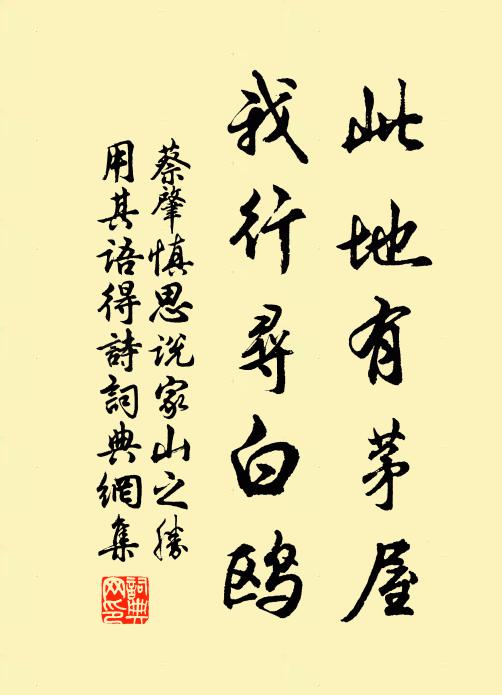 此地有茅屋
我行尋白鸥
蔡肇慎思说家山之勝
用其语得詩詞典網集
詞典网印